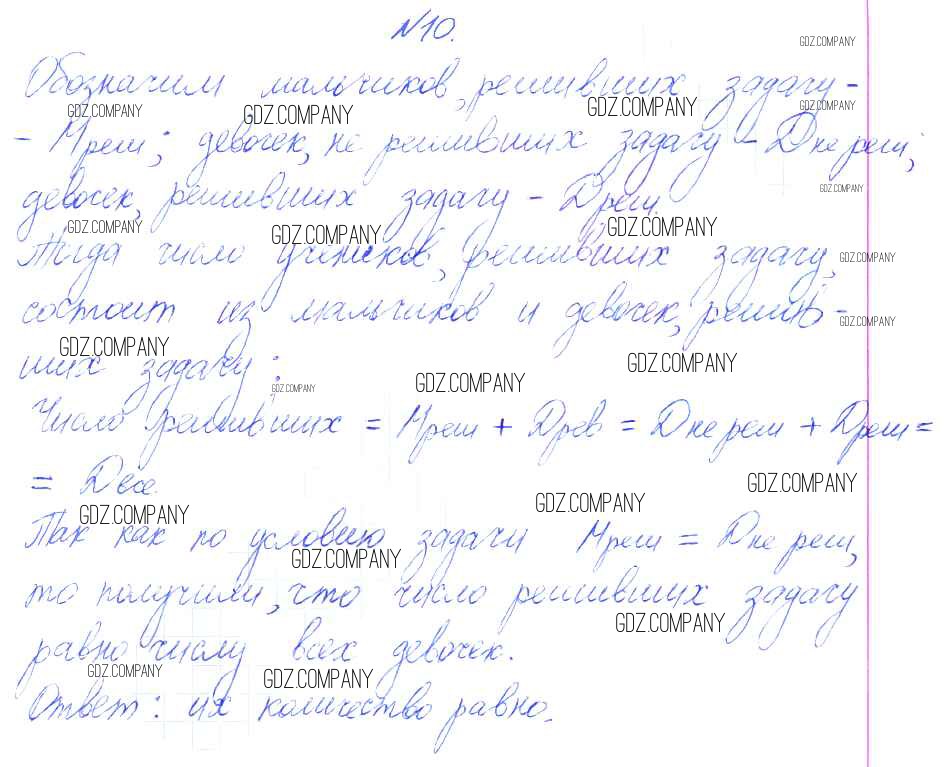 №10.
GDZ.COMPANY
Обозначим мальчиков, решивших задачу -
GDZ.COMPANY GDZ.COMPANY GDZ.COMPANY GDZ.COMPANY
- Mреш; девочек, не решивших задачу - Дне реш;
GDZ.COMPANY
девочек, решивших задачу - Dреш.
GDZ.COMPANY GDZ.COMPANY GDZ.COMPANY
Тогда число учеников, решивших задачу,
GDZ.COMPANY
состоит из мальчиков и девочек, решив-
GDZ.COMPANY
GDZ.COMPANY GDZ.COMPANY
ших задачу:
GDZ.COMPANY GDZ.COMPANY
Число решивших = Mреш + Dрев = Dне реш + Dреш =
= Dвсе.
GDZ.COMPANY GDZ.COMPANY GDZ.COMPANY
Так как по условию задачи Mреш = Dне реш,
GDZ.COMPANY
то получили, что число решивших задачу
GDZ.COMPANY
равно числу всех девочек.
GDZ.COMPANY GDZ.COMPANY
Ответ: их количество равно.